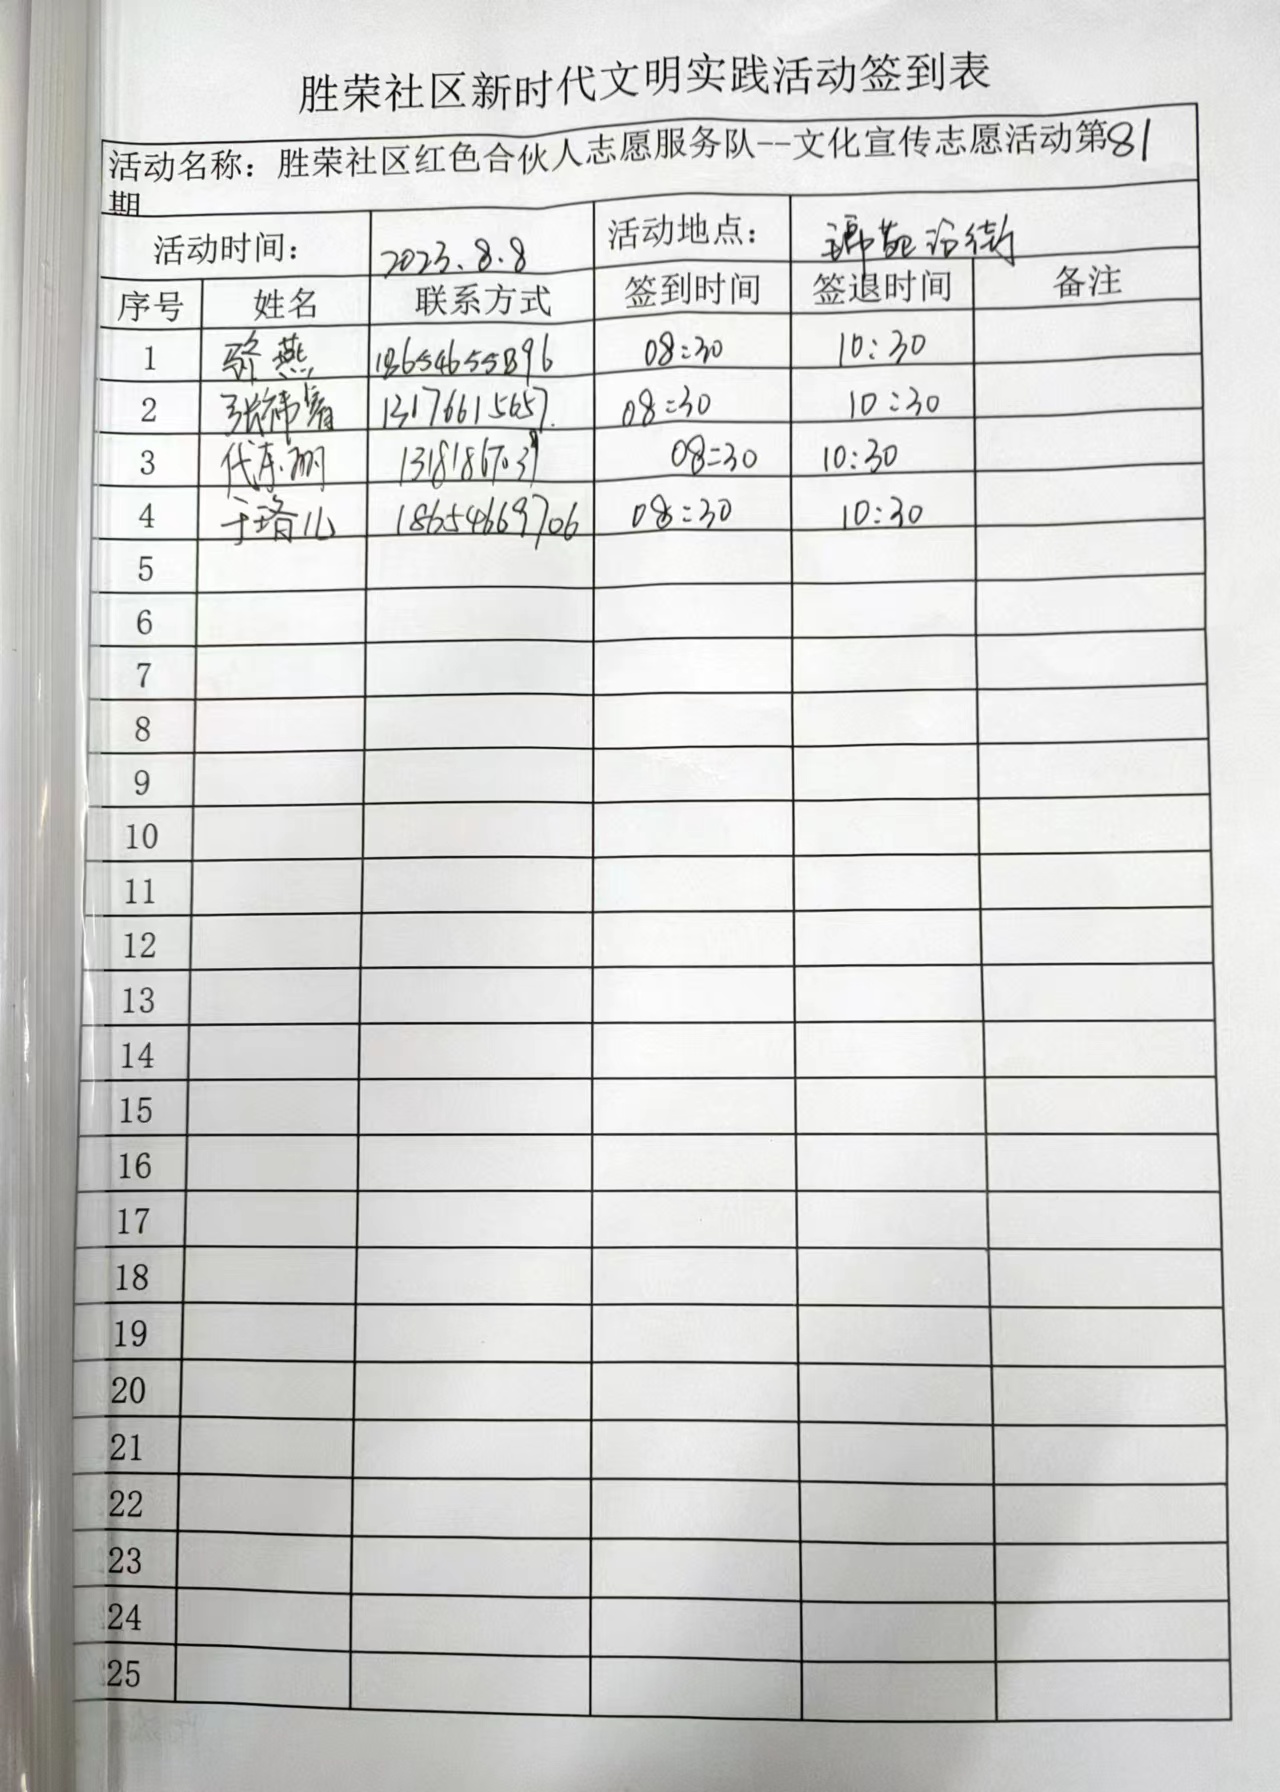 胜荣社区新时代文明实践活动签到表
活动名称：胜荣社区红色合伙人志愿服务队--文化宣传志愿活动第81
期
活动时间： 2023.8.8 活动地点： 沿街
序号 姓名 联系方式 签到时间 签退时间 备注
1 骄燕 18654655896 08:30 10:30
2 张祎睿 13176615657 08:30 10:30
3 代东丽 08:30 10:30
4 于瑃儿 18654669706 08:30 10:30
5
6
7
8
9
10
11
12
13
14
15
16
17
18
19
20
21
22
23
24
25